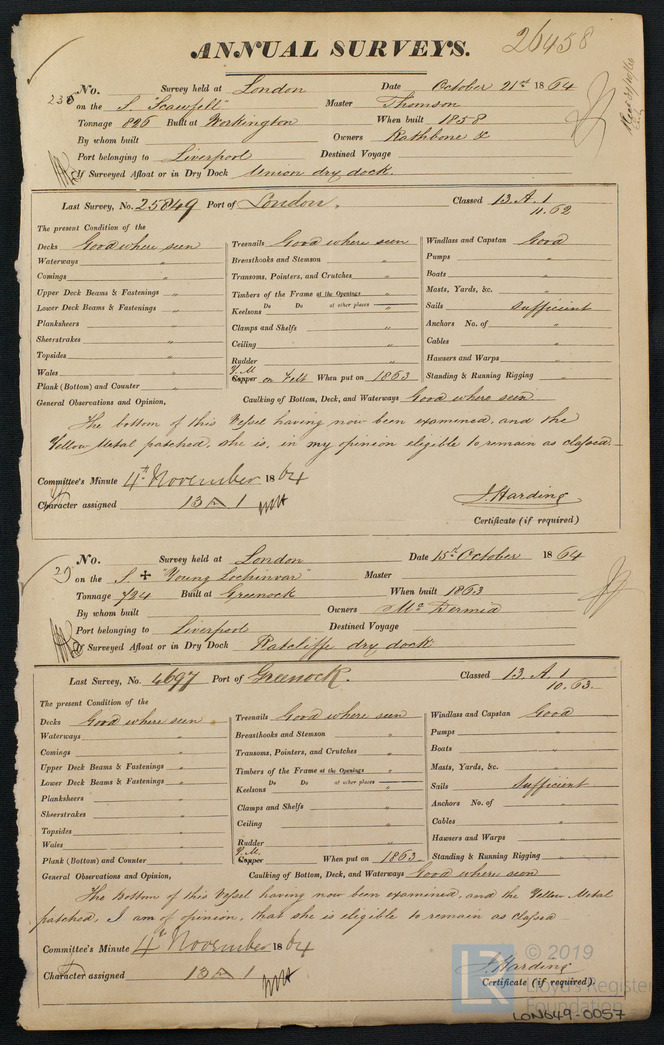 ANNUAL SURVEYS. 26458
No. Survey held at London Date October 21st 1864
on the S. "Scawfell" Master Thomson
Tonnage 826 Built at Workington When built 1858
By whom built Owners Rathbone &
Port belonging to Liverpool Destined Voyage
If Surveyed Afloat or in Dry Dock Union dry dock.
Last Survey, No. 25849 Port of London. Classed 13. A. 1
11.62
The present Condition of the
Decks Good where seen Treenails Good where seen Windlass and Capstan Good
Waterways " Breasthooks and Stemson " Pumps "
Comings " Transoms, Pointers, and Crutches " Boats "
Upper Deck Beams & Fastenings " Timbers of the Frame at the Openings " Masts, Yards, &c. "
Do Do at other places
Lower Deck Beams & Fastenings " Keelsons " Sails Sufficient
Planksheers " Clamps and Shelfs " Anchors No. of "
Sheerstrakes " Ceiling " Cables "
Topsides " Rudder " Hawsers and Warps "
Wales " Y. M.
Plank (Bottom) and Counter " Copper on Felt When put on 1863 Standing & Running Rigging "
General Observations and Opinion, Caulking of Bottom, Deck, and Waterways Good where seen
The bottom of this Vessel having now been examined, and the
Yellow Metal patched, she is, in my opinion eligible to remain as classed —
Committee's Minute 4th November 1864
Character assigned 13 A 1 J. Harding
Certificate (if required)
29 No. Survey held at London Date 15th October 1864
on the S. + "Young Lochinvar" Master
Tonnage 724 Built at Greenock When built 1863
By whom built Owners Mc Dermid
Port belonging to Liverpool Destined Voyage
If Surveyed Afloat or in Dry Dock Ratcliffe dry dock
Last Survey, No. 4697 Port of Greenock. Classed 13. A. 1
10.63.
The present Condition of the
Decks Good where seen Treenails Good where seen Windlass and Capstan Good
Waterways " Breasthooks and Stemson " Pumps "
Comings " Transoms, Pointers, and Crutches " Boats "
Upper Deck Beams & Fastenings " Timbers of the Frame at the Openings " Masts, Yards, &c. "
Do Do at other places
Lower Deck Beams & Fastenings " Keelsons " Sails Sufficient
Planksheers " Clamps and Shelfs " Anchors No. of "
Sheerstrakes " Ceiling " Cables "
Topsides " Rudder " Hawsers and Warps "
Wales " Y. M.
Plank (Bottom) and Counter " Copper When put on 1863 Standing & Running Rigging "
General Observations and Opinion, Caulking of Bottom, Deck, and Waterways Good where seen
The bottom of this Vessel having now been examined, and the Yellow Metal
patched, I am of opinion, that she is eligible to remain as classed —
Committee's Minute 4th November 1864
Character assigned 13 A 1 J. Harding
Certificate (if required)
© 2019
LR Lloyd's Register
Foundation
LON649-0057